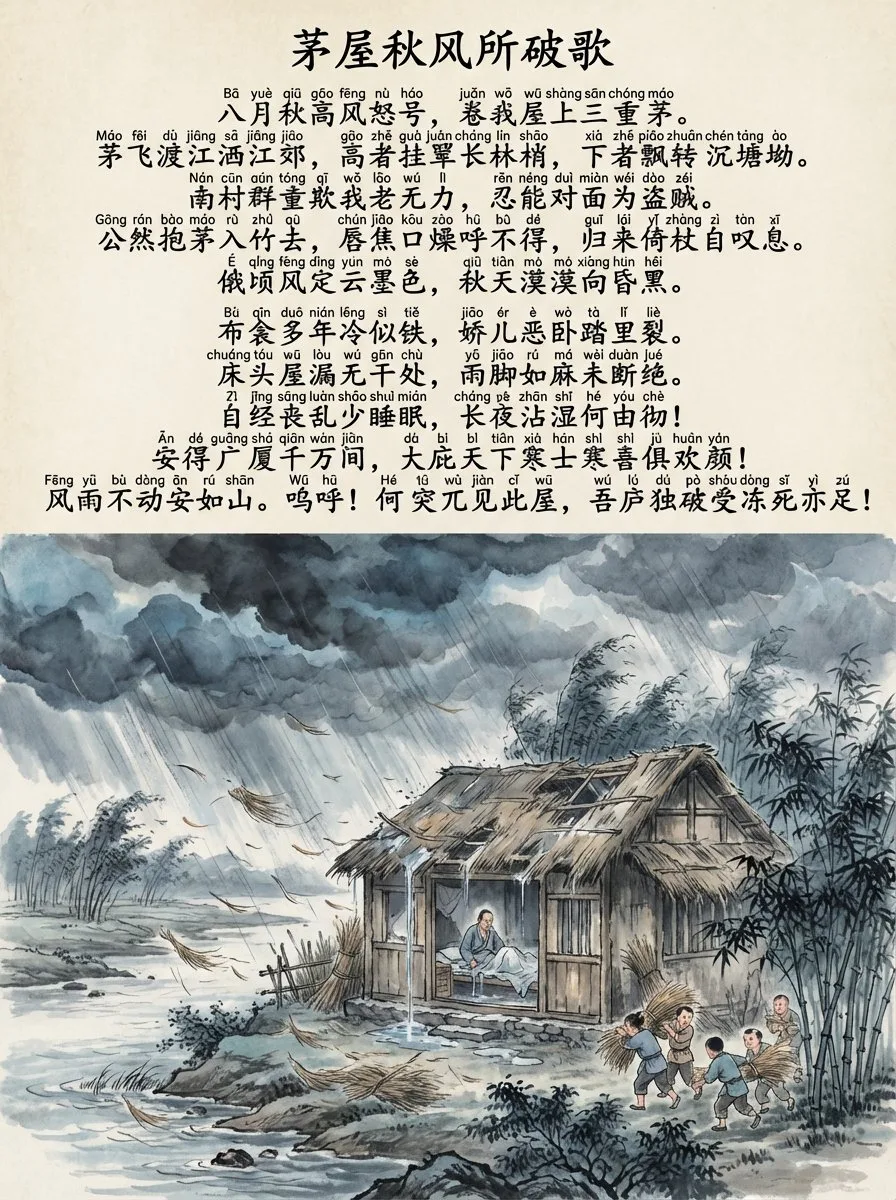 茅屋秋风所破歌
Bā yuè qiū gāo fēng nù háo juǎn wō wū shàng sān chóng máo
八月秋高风怒号，卷我屋上三重茅。
Máo fēi dù jiāng sǎ jiāng jiāo gāo zhě guà juàn cháng lín shāo xià zhě piāo zhuǎn chén táng ào
茅飞渡江洒江郊，高者挂罥长林梢，下者飘转 沉塘坳。
Nán cūn qún tóng qī wǒ lǎo wú lì rěn néng duì miàn wéi dào zéi
南村群童欺我老无力，忍能对面为盗贼。
Gōng rán bào máo rù zhú qù chún jiāo kōu zào hū bù dé guī lái yǐ zhàng zì tàn xī
公然抱茅入竹去，唇焦口燥呼不得，归来倚杖自叹息。
É qǐng fēng dìng yún mò sè qiū tiān mò mò xiàng hūn hēi
俄顷风定云墨色，秋天漠漠向昏黑。
Bù qīn duō nián lěng sì tiě jiāo ér è wò tà lǐ liè
布衾多年冷似铁，娇儿恶卧踏里裂。
chuáng tóu wū lòu wú gān chù yǔ jiāo rú má wèi duàn jué
床头屋漏无干处，雨脚如麻未断绝。
Zì jīng sāng luàn shǎo shuì mián cháng yè zhān shī hé yóu chè
自经丧乱少睡眠，长夜沾湿何由彻！
Ān dé guǎng shà qiān wàn jiān dà bì bì tiān xià hán shì shì jù huān yán
安得广厦千万间，大庇天下寒士寒喜俱欢颜！
Fēng yǔ bù dòng ān rú shān Wū hū Hé wù jiàn cǐ wū wú lú dú pò shòu dòng sǐ yì zú
风雨不动安如山。呜呼！何突兀见此屋，吾庐独破受冻死亦足！